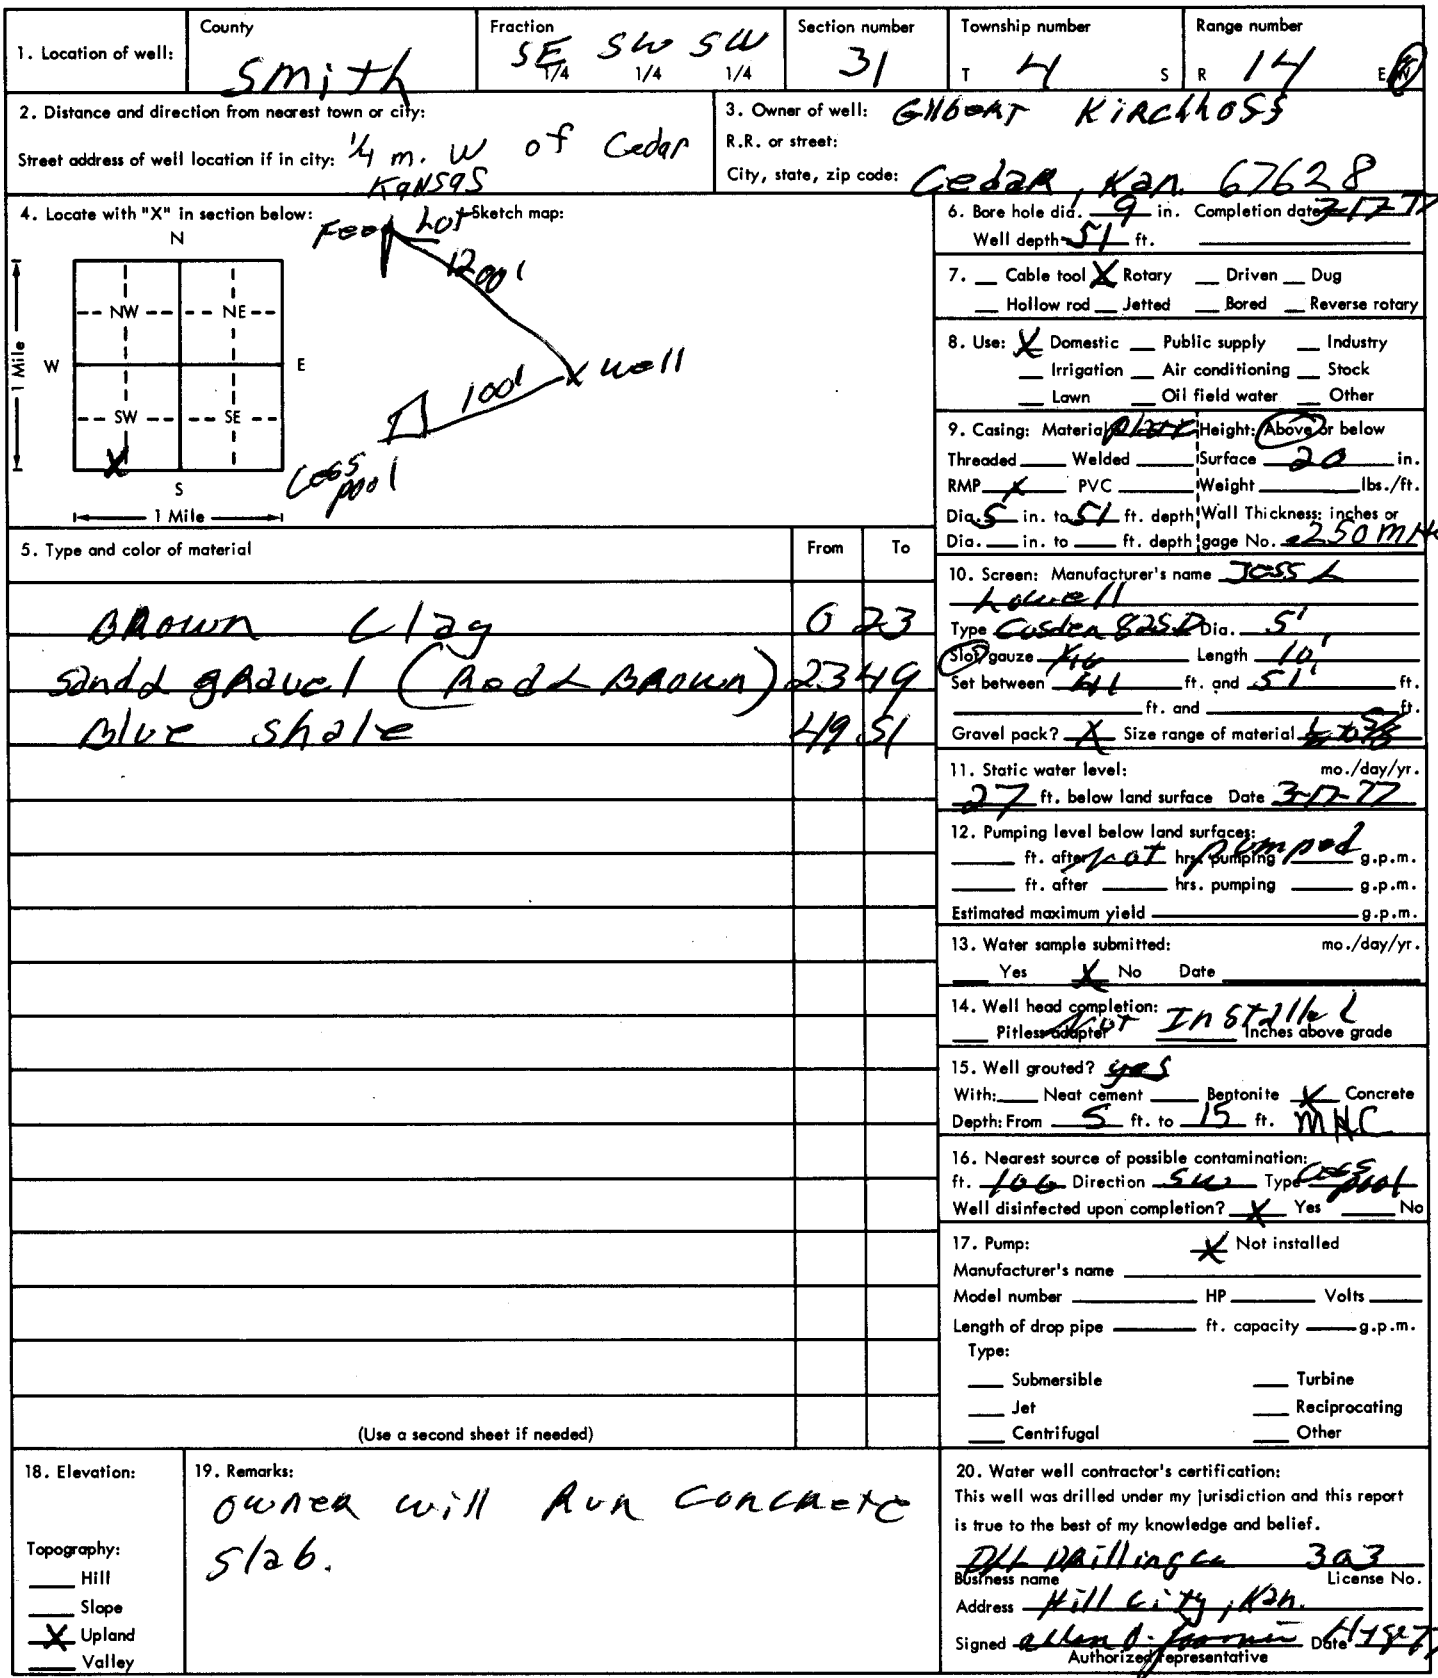 1. Location of well:
County
Smith
Fraction
SE SW SW
1/4 1/4 1/4
Section number
31
Township number
T 4 S
Range number
R 14 E W
2. Distance and direction from nearest town or city:
Street address of well location if in city: 1/4 m. W of Cedar
Kansas
3. Owner of well: Gilbert Kirchhoff
R.R. or street:
City, state, zip code: Cedar, Kan. 67628
4. Locate with "X" in section below:
Sketch map:
N
NW NE
W E
SW SE
X
S
1 Mile
1 Mile
Feed Lot
1200'
X well
100'
Cess
pool
5. Type and color of material From To
Brown Clay 0 23
Sand & gravel (Red & Brown) 23 49
Blue shale 49 51
(Use a second sheet if needed)
6. Bore hole dia. 9 in. Completion date 3-17-77
Well depth 51 ft.
7. Cable tool X Rotary Driven Dug
Hollow rod Jetted Bored Reverse rotary
8. Use: X Domestic Public supply Industry
Irrigation Air conditioning Stock
Lawn Oil field water Other
9. Casing: Material Height: Above or below
Threaded Welded Surface 20 in.
RMP X PVC Weight lbs./ft.
Dia. 5 in. to 51 ft. depth Wall Thickness: inches or
Dia. in. to ft. depth gage No. .250
10. Screen: Manufacturer's name Jess L
Lowell
Type Dia. 5'
Slot/gauze 1/16 Length 10'
Set between 41 ft. and 51' ft.
ft. and ft.
Gravel pack? X Size range of material
11. Static water level: mo./day/yr.
27 ft. below land surface Date 3-17-77
12. Pumping level below land surfaces:
ft. after not hrs. pumping pumped g.p.m.
ft. after hrs. pumping g.p.m.
Estimated maximum yield g.p.m.
13. Water sample submitted: mo./day/yr.
Yes X No Date
14. Well head completion:
Not Installed
Pitless adapter Inches above grade
15. Well grouted? yes
With: Neat cement Bentonite X Concrete
Depth: From 5 ft. to 15 ft. MHC
16. Nearest source of possible contamination:
ft. 100 Direction SW Type Cess pool
Well disinfected upon completion? X Yes No
17. Pump: X Not installed
Manufacturer's name
Model number HP Volts
Length of drop pipe ft. capacity g.p.m.
Type:
Submersible Turbine
Jet Reciprocating
Centrifugal Other
18. Elevation:
Topography:
Hill
Slope
X Upland
Valley
19. Remarks:
owner will Run Concrete
slab.
20. Water well contractor's certification:
This well was drilled under my jurisdiction and this report
is true to the best of my knowledge and belief.
Drilling Co 303
Business name License No.
Address Hill City, Kan.
Signed Date
Authorized representative